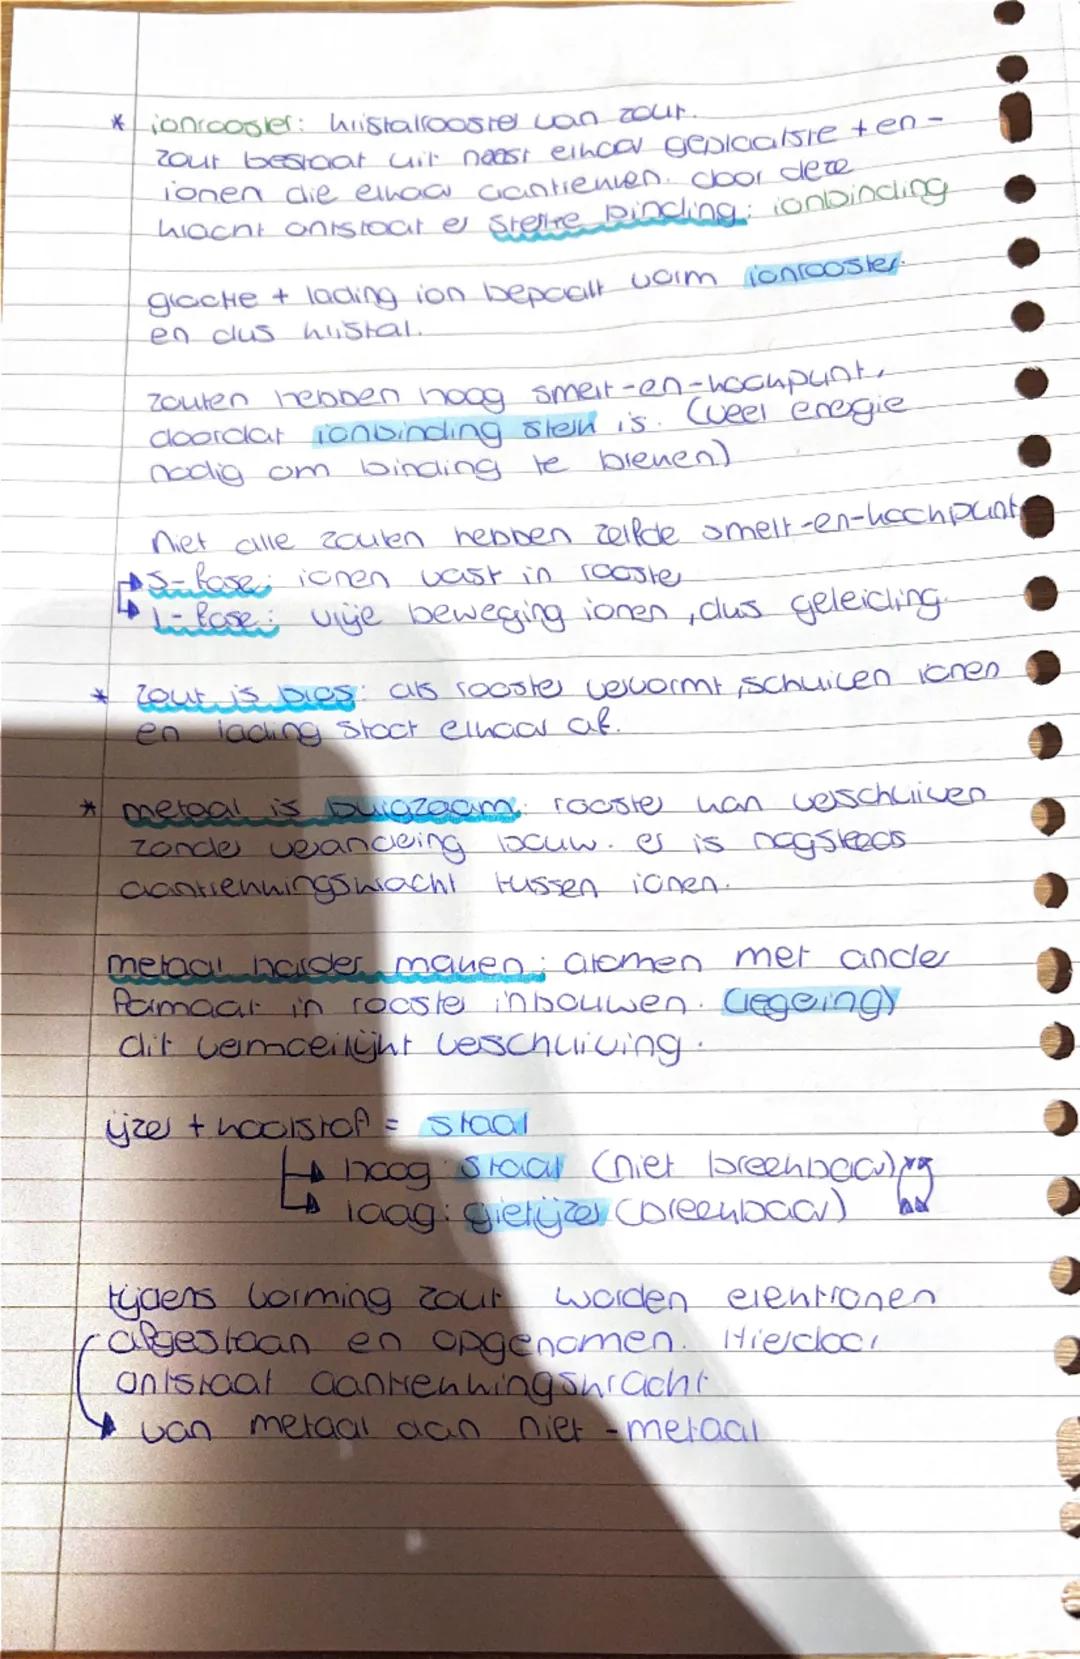 * ionrooster: kristalrooster van zout.
zout bestaat uit naast elkaar geplaatste + en -
ionen die elkaar aantrekken. door deze
kracht ontstaat er sterke binding: ionbinding
grootte + lading ion bepaalt vorm ionrooster.
en dus kristal.
zouten hebben hoog smelt-en-kookpunt,
doordat ionbinding sterk is. (veel energie
nodig om binding te breken)
Niet alle zouten hebben zelfde smelt-en-kookpunt
s-fase: ionen vast in rooster
l-fase: vrije beweging ionen, dus geleiding.
* zout is bros: als rooster vervormt, schuiven ionen
en lading stoot elkaar af.
* metaal is buigzaam: rooster kan verschuiven
zonder verandering bouw. er is nogsteeds
aantrekkingskracht tussen ionen.
metaal harder maken: atomen met ander
formaat in rooster inbouwen. (legering)
dit vermoeilijkt verschuiving.
ijzer + koolstof = staal
hoog: staal (niet breekbaar)
laag: gietijzer (breekbaar)
tijdens vorming zout worden elektronen
afgestaan en opgenomen. Hierdoor
ontstaat aantrekkingskracht
van metaal aan niet-metaal